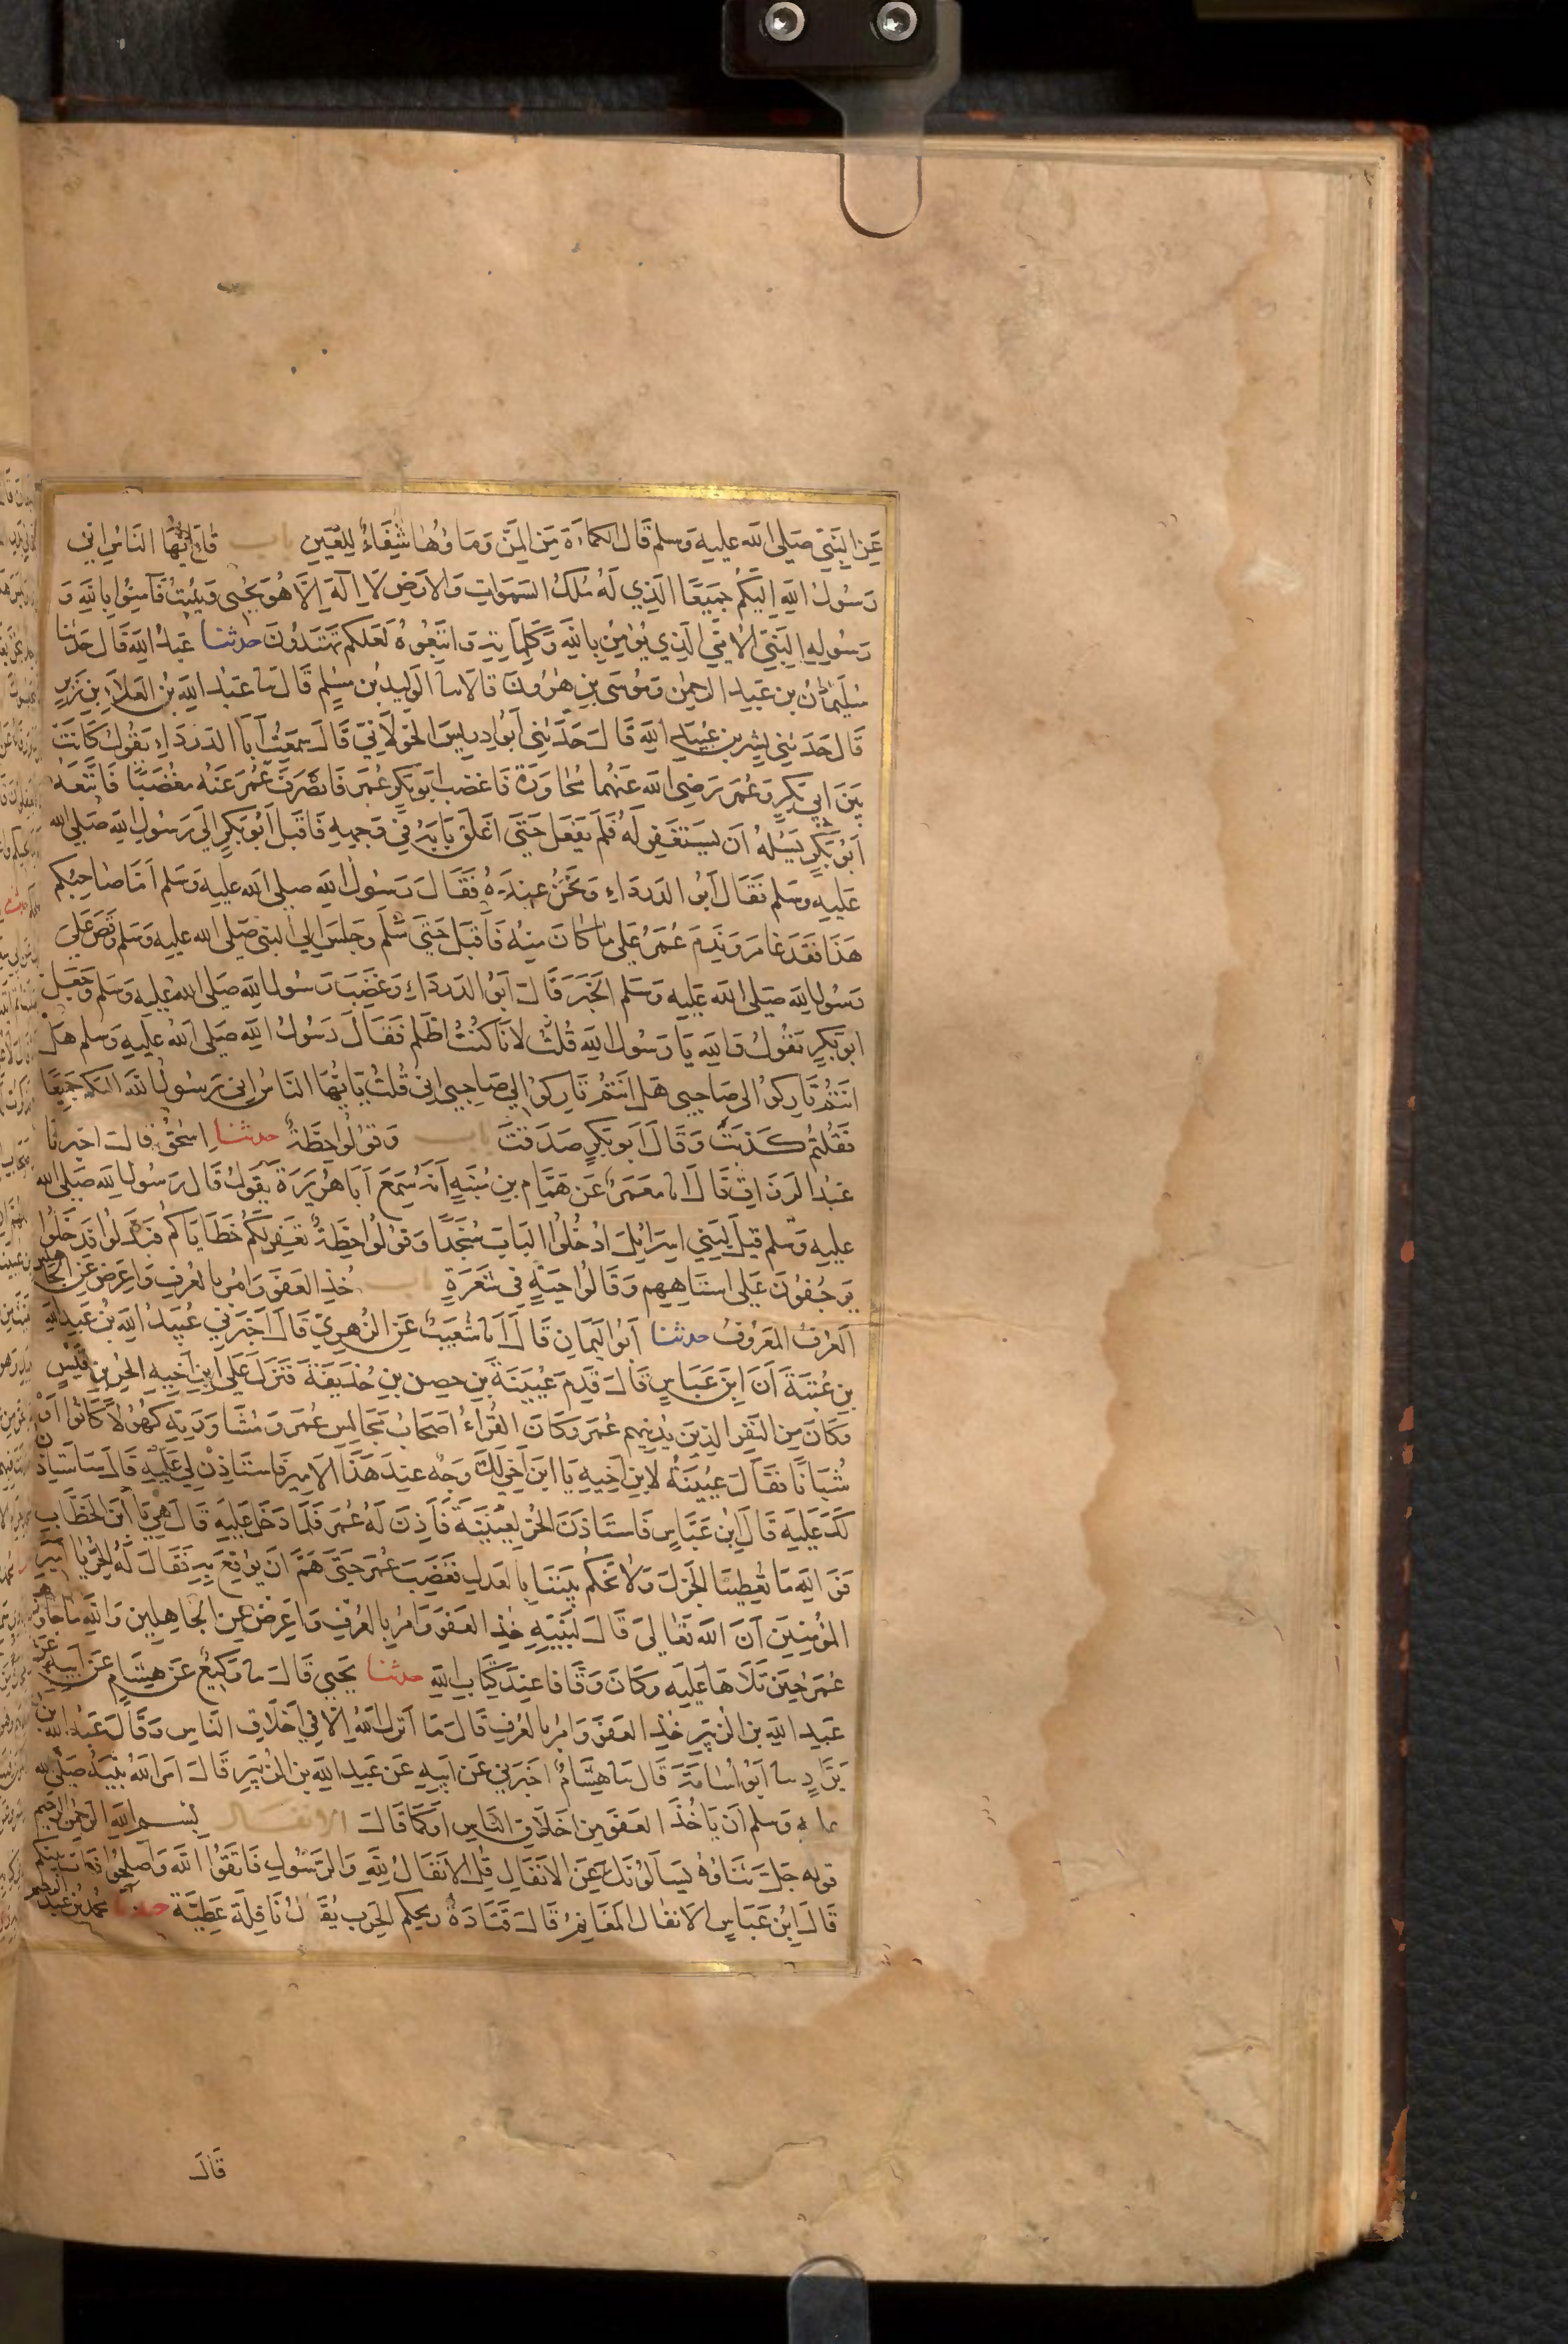 عَنِ النَّبِيِّ صَلى الله عليه وَسلم قَالَ الكماءَة مِنَ المَنِّ وَمَاؤُهَا شِفَاءٌ لِلعَينِ باب قل يَا أَيُّهَا النَاسُ اِنِي
رَسُولُ اللهِ اِلَيكُم جَمِيعًا الَذِي لَهُ مُلكُ السَمَوَاتِ وَالارَضِ لَا اِلَهَ اِلَّا هُوَ يُحْيِي وَيُمِيتُ فَآمِنُوا بِاللهِ وَ
رَسُولِهِ النَبِيِّ الاُمِيِّ الَذِي يُؤمِنُ بِاللهِ وَكَلِمَاتِهِ وَاتَبِعُوهُ لَعَلكم تَهتَدُونَ حدثنا عَبدُ اللهِ قَالَ حَدثنا
سُلَيمَانُ بن عَبدِ الرحمنِ وَمُوسَى بنِ هٰرُونَ قالا سا الوَلِيد بن مسلم قَالَ سا عَبدُ اللهِ بن العَلَاءِ بن زَبرٍ
قَالَ حَدَثنِي بسر بن عُبَيدِ اللهِ قَالَ حَدَثنِي اَبُو ادرِيسَ الخَولَانِيّ قَالَ سَمِعتُ اَبَا الدَردَاءِ يَقُولُ كَانَت
بَينَ اَبِي بَكرٍ وَعُمَرَ رَضِيَ الله عَنهُما مُحَاوَرَة فَاغضَبَ اَبُو بَكرٍ عُمَرَ فَانصَرَفَ عُمَرُ عَنهُ مغضَبًا فَاتَّبَعَهُ
اَبُو بَكرٍ يَسئلهُ اَن يَستَغفِر لَهُ فَلَم يَفعَل حَتَى اَغلَقَ بَابَهُ فِي وَجهِهِ فَاقبَلَ اَبُو بَكرٍ اِلَى رَسُولِ اللهِ صَلى الله
عَلَيهِ وسلم فَقَالَ اَبُو الدَردَاءِ وَنَحنُ عِندَهُ فَقَالَ رَسُولُ اللهِ صلى الله عليه وَسلم اَمَّا صَاحِبُكُم
هَذَا فَقَد غَامَرَ وَنَدِمَ عُمَرُ عَلى مَا كَانَ مِنهُ فَاَقبَلَ حَتى سَلَّمَ وَجَلَسَ اِلَى النَبِي صَلى الله عليه وَسَلم وَقَصَّ عَلَى
رَسُولِ اللهِ صَلى الله عَلَيه وَسَلم الخَبَرَ قَالَ اَبُو الدَردَاءِ وَغَضِبَ رَسُولُ اللهِ صَلى الله عَلَيهِ وَسَلم وَجَعَلَ
ابو بَكرٍ يَقُولُ وَاللهِ يَا رَسُولَ اللهِ قُلتُ لاَنَا كُنتُ اَظلَم فَقَالَ رَسُولُ اللهِ صَلى الله عليهِ وَسلم هَل
اَنتُم تَارِكُوا لِي صَاحِبِي هَل اَنتُم تَارِكُوا لِي صَاحِبِي اِنِي قُلتُ يَا اَيُّهَا النَاسُ اِنِي رَسُولُ اللهِ اليكم جَمِيعًا
فَقُلتُم كَذَبتَ وَقَالَ اَبو بَكرٍ صَدَقتَ باب وَقُولُوا حِطَّةٌ حدثنا اِسحٰقُ قالَ اخبرنا
عَبدُ الرَزَاقِ قَالَ انا مَعمَرٌ عَن هَمَّامِ بنِ مُنَبِّهٍ اَنهُ سَمِعَ اَبَا هُرَيرَةَ يَقُولُ قَالَ رَسُولُ اللهِ صَلى الله
عليه وَسلم قِيلَ لِبَنِي اسرَائِيلَ ادخُلُوا البَابَ سُجَّدًا وَقُولُوا حِطَّةٌ نَغفِر لَكُم خَطَايَاكُم فَبَدَلُوا فَدَخَلُوا
يَزحَفُونَ عَلى استَاهِهِم وَقَالُوا حَبَّةٍ فِي شَعَرَةٍ باب خُذِ العَفوَ وَامُر بِالعُرفِ وَاَعرِض عَنِ الجاهلين
اَلعُرفُ المَعرُوفُ حدثنا اَبُو اليَمَانِ قَالَ اَنا شُعَيبٌ عَنِ الزُهرِيّ قَالَ اَخبَرَنِي عُبَيدُ اللهِ بنُ عَبدِ اللهِ
بن عُتبَةَ اَنَّ ابنَ عَبَاسٍ قَالَ قَدِمَ عُيَينَةُ بن حِصنِ بنِ حُذَيفَةَ فَنَزَلَ عَلَى ابنِ اَخِيهِ الحُرِّ بنِ قَيسٍ
وَكَانَ مِنَ النَفَرِ الذِينَ يُدنِيهِم عُمَرُ وَكَانَ القُرَّاءُ اَصحَابَ مَجَالِسِ عُمَرَ وَمُشَاوَرَتِهِ كُهُولًا كَانُوا اَو
شُبَانًا فَقَالَ عُيَينَةُ لابنِ اَخِيهِ يَا ابنَ اَخِي لَكَ وَجهٌ عِندَ هَذَا الاَمِيرِ فَاستَاذِن لِي عَلَيهِ قَالَ سَاَستَاذِن
لَكَ عَلَيهِ قَالَ ابنُ عَبَّاسٍ فَاستَاذَنَ الحُرُّ لِعُيَينَةَ فَاَذِنَ لَهُ عُمَرُ فَلَمَّا دَخَلَ عَلَيهِ قَالَ هِي يَا ابنَ الخَطَّابِ
فَوَ اللهِ مَا تُعطِينَا الجَزلَ وَلا تَحكُم بَينَنَا بِالعَدلِ فَغَضِبَ عُمَر حَتَى هَمَّ اَن يُوقِعَ بِهِ فَقَالَ لَهُ الحُرُّ يَا اَمِيرَ
المُؤمِنِينَ اَنَّ اللهَ تَعَالى قَالَ لِنَبِيِّهِ خُذِ العَفوَ وَامُر بِالعُرفِ وَاَعرِض عَنِ الجَاهِلِينَ وَاللهِ مَا جَاوَزَهَا
عُمَرُ حِينَ تَلَاهَا عَلَيهِ وَكَانَ وَقَّافًا عِندَ كِتَابِ اللهِ حدثنا يَحيى قَالَ سا وَكِيعٌ عَن هِشَامٍ عَن اَبِيهِ عَن
عَبدِ اللهِ بنِ الزُبَيرِ خُذِ العَفوَ وَامُر بِالعُرفِ قَالَ مَا اَنزَلَ اللهُ اِلّا فِي اَخلَاقِ النَاسِ وَقَالَ عَبدُ الله بن
بَرَّادٍ سا اَبُو اُسَامَةَ قَالَ سا هِشَامٌ اخبَرَنِي عَن اَبِيهِ عَن عَبدِ اللهِ بنِ الزُبَيرِ قَالَ اَمَرَ اللهُ نَبِيَّهُ صَلى الله
عليه وَسلم اَن يَاخُذَ العَفوَ مِن اَخلَاقِ النَاسِ اَو كَمَا قَالَ الانفـال بِسـم اللهِ الرَحمٰنِ الرَحِيم
قوله جَلَّ ثَنَاؤُهُ يَسئَلُونَكَ عَنِ الاَنفَالِ قُلِ الاَنفَالُ لِلهِ وَالرَسُولِ فَاتَقُوا اللهَ وَاَصلِحُوا ذَاتَ بَينِكُم
قَالَ ابنُ عَبَاسٍ الانفال المَغَانِمُ قَالَ قَتَادَةُ رِيحُكُم الحَرب يُقَالُ نَافِلَةٌ عَطِيَّة حدثنا مُحمدُ بن عَبدِ الرحيم
قَالَ